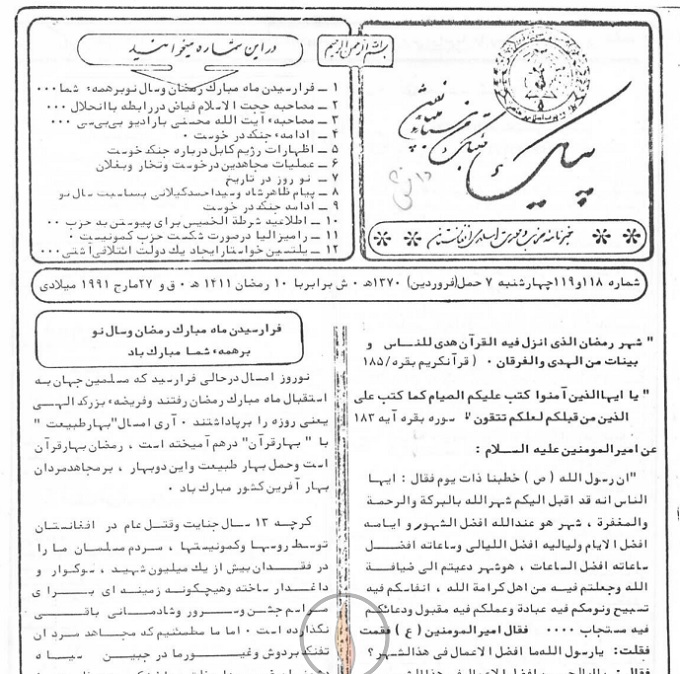 بسم الله الرحمن الرحیم
پیک
خبرنامه
در این شماره میخوانید
۱ ــ فرارسیدن ماه مبارك رمضان وسال نوبرهمهء شما ۰۰۰
۲ ــ مصاحبه حجت الاسلام فیاض در رابطه باانحلال ۰۰۰
۳ ــ مصاحبهء آیت الله محسنی بارادیو بی‌بی‌سی ۰۰۰
۴ ــ ادامهء جنگ در خوست ۰
۵ ــ اظهارات رژیم کابل درباره جنگ خوست
۶ ــ عملیات مجاهدین درخوست وتخار وبغلان
۷ ــ نو روز در تاریخ
۸ ــ پیام ظاهرشاه وسیداحمدگیلانی بمناسبت سال نو
۹ ــ ادامه جنگ در خوست
۱۰ ــ اطلاعیه شرطة الخمیس برای پیوستن به حزب ۰۰
۱۱ ــ رامیزالیا درصورت شکست حزب کمونیست ۰
۱۲ ــ یلتسین خواستارایجاد یك دولت ائتلافی‌آشتی ۰۰۰
شماره ۱۱۸و۱۱۹چهارشنبه ۷ حمل(فروردین) ۱۳۷۰هـ ۰ ش برابربا ۱۰ رمضان ۱۴۱۱ هـ ۰ ق و ۲۷مارچ ۱۹۹۱ میلادی
" شهر رمضان الذی انزل فیه القرآن هدی للناس و
بینات من الهدی والفرقان ۰ ( قرآنکریم بقره/۱۸۵
" یا ایهاالذین آمنوا کتب علیکم الصیام کما کتب علی
الذین من قبلکم لعلکم تتقون " سوره بقره آیه ۱۸۳
عن امیرالمومنین علیه السلام :
"ان رسول الله ( ص ) خطبنا ذات یوم فقال : ایها
الناس انه قد اقبل الیکم شهرالله بالبرکة والرحمة
والمغفرة ، شهر هو عندالله افضل الشهور و ایامه
افضل الایام ولیالیه افضل اللیالی وساعاته افضل
ساعاته افضل الساعات ، هوشهر دعیتم الی ضیافة
الله وجعلتم فیه من اهل کرامة الله ، انفاسکم فیه
تسبیح ونومکم فیه عبادة وعملکم فیه مقبول ودعائکم
فیه مستجاب ۰۰۰۰ فقال امیرالمومنین ( ع ) فقمت
فقلت: یارسول الله‌ما افضل الاعمال فی هذاالشهر؟
فرارسیدن ماه مبارك رمضان وسال نو
برهمهء شما مبارك باد
نوروز امسال درحالی فرارسید که مسلمین جهان به
استقبال ماه مبارك رمضان رفتند وفریضهء بزرگ الهی
یعنی روزه را برپاداشتند ۰ آری امسال"بهارطبیعت "
با " بهارقرآن" درهم آمیخته است ، رمضان بهارقرآن
است وحمل بهار طبیعت واین دوبهار ، برمجاهدمردان
بهار آفرین کشور مبارك باد ۰
گرچه ۱۳ سال جنایت وقتل عام در افغانستان
توسط روسها وکمونیستها ، مردم مسلمان ما را
در فقدان بیش از یك میلیون شهید ، سوگوار و
داغدار ساخته وهیچگونه زمینه ای برای
مراسم جشن وسرور وشادمانی باقی
نگذارده است ۰ اما ما مطمئنیم که مجاهد مردان
تفنگ بردوش وغیورما در جبین سیاه